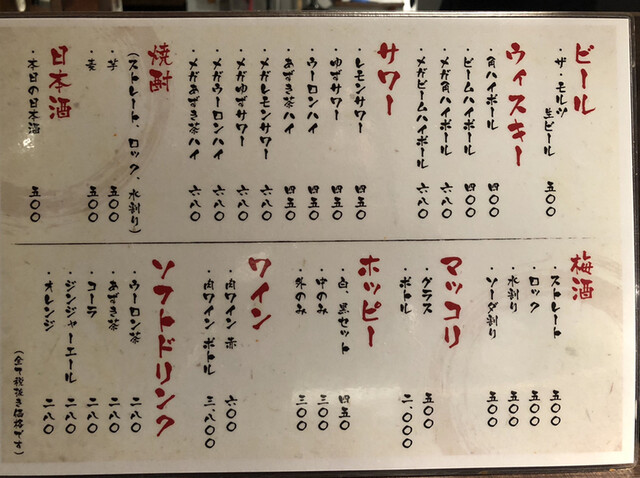 ビール
・ザ・モルツ
生ビール 五〇〇
ウィスキー
・角ハイボール 四〇〇
・ビームハイボール 四〇〇
・メガ角ハイボール 六八〇
・メガビームハイボール 六八〇
サワー
・レモンサワー 四五〇
・ゆずサワー 四五〇
・ウーロンハイ 四五〇
・あずき茶ハイ 四五〇
・メガレモンサワー 六八〇
・メガゆずサワー 六八〇
・メガウーロンハイ 六八〇
・メガあずき茶ハイ 六八〇
焼酎
(ストレート、ロック、水割り)
・芋 五〇〇
・麦 五〇〇
日本酒
・本日の日本酒 五〇〇
梅酒
・ストレート 五〇〇
・ロック 五〇〇
・水割り 五〇〇
・ソーダ割り 五〇〇
マッコリ
・グラス 五〇〇
・ボトル 二、〇〇〇
ホッピー
・白、黒セット 四五〇
・中のみ 三〇〇
・外のみ 三〇〇
ワイン
・肉ワイン 赤 六〇〇
・肉ワイン ボトル 三、八〇〇
ソフトドリンク
・ウーロン茶 二八〇
・あずき茶 二八〇
・コーラ 二八〇
・ジンジャーエール 二八〇
・オレンジ 二八〇
(全て税抜き価格です)